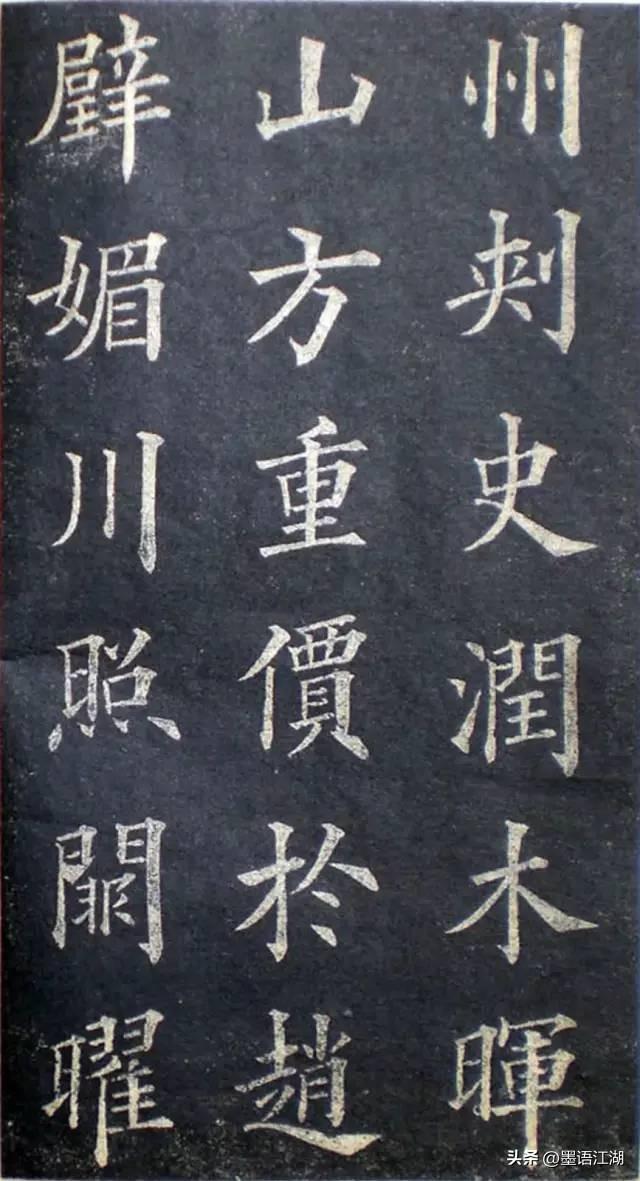 州刺史潤木暉
山方重價於趙
璧媚川照闕曜
头条 @墨语江湖